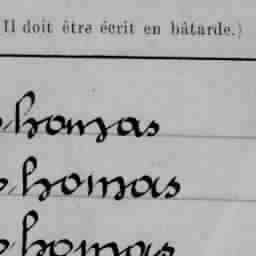 Il doit être écrit en bâtarde.)
homas
homas
homas